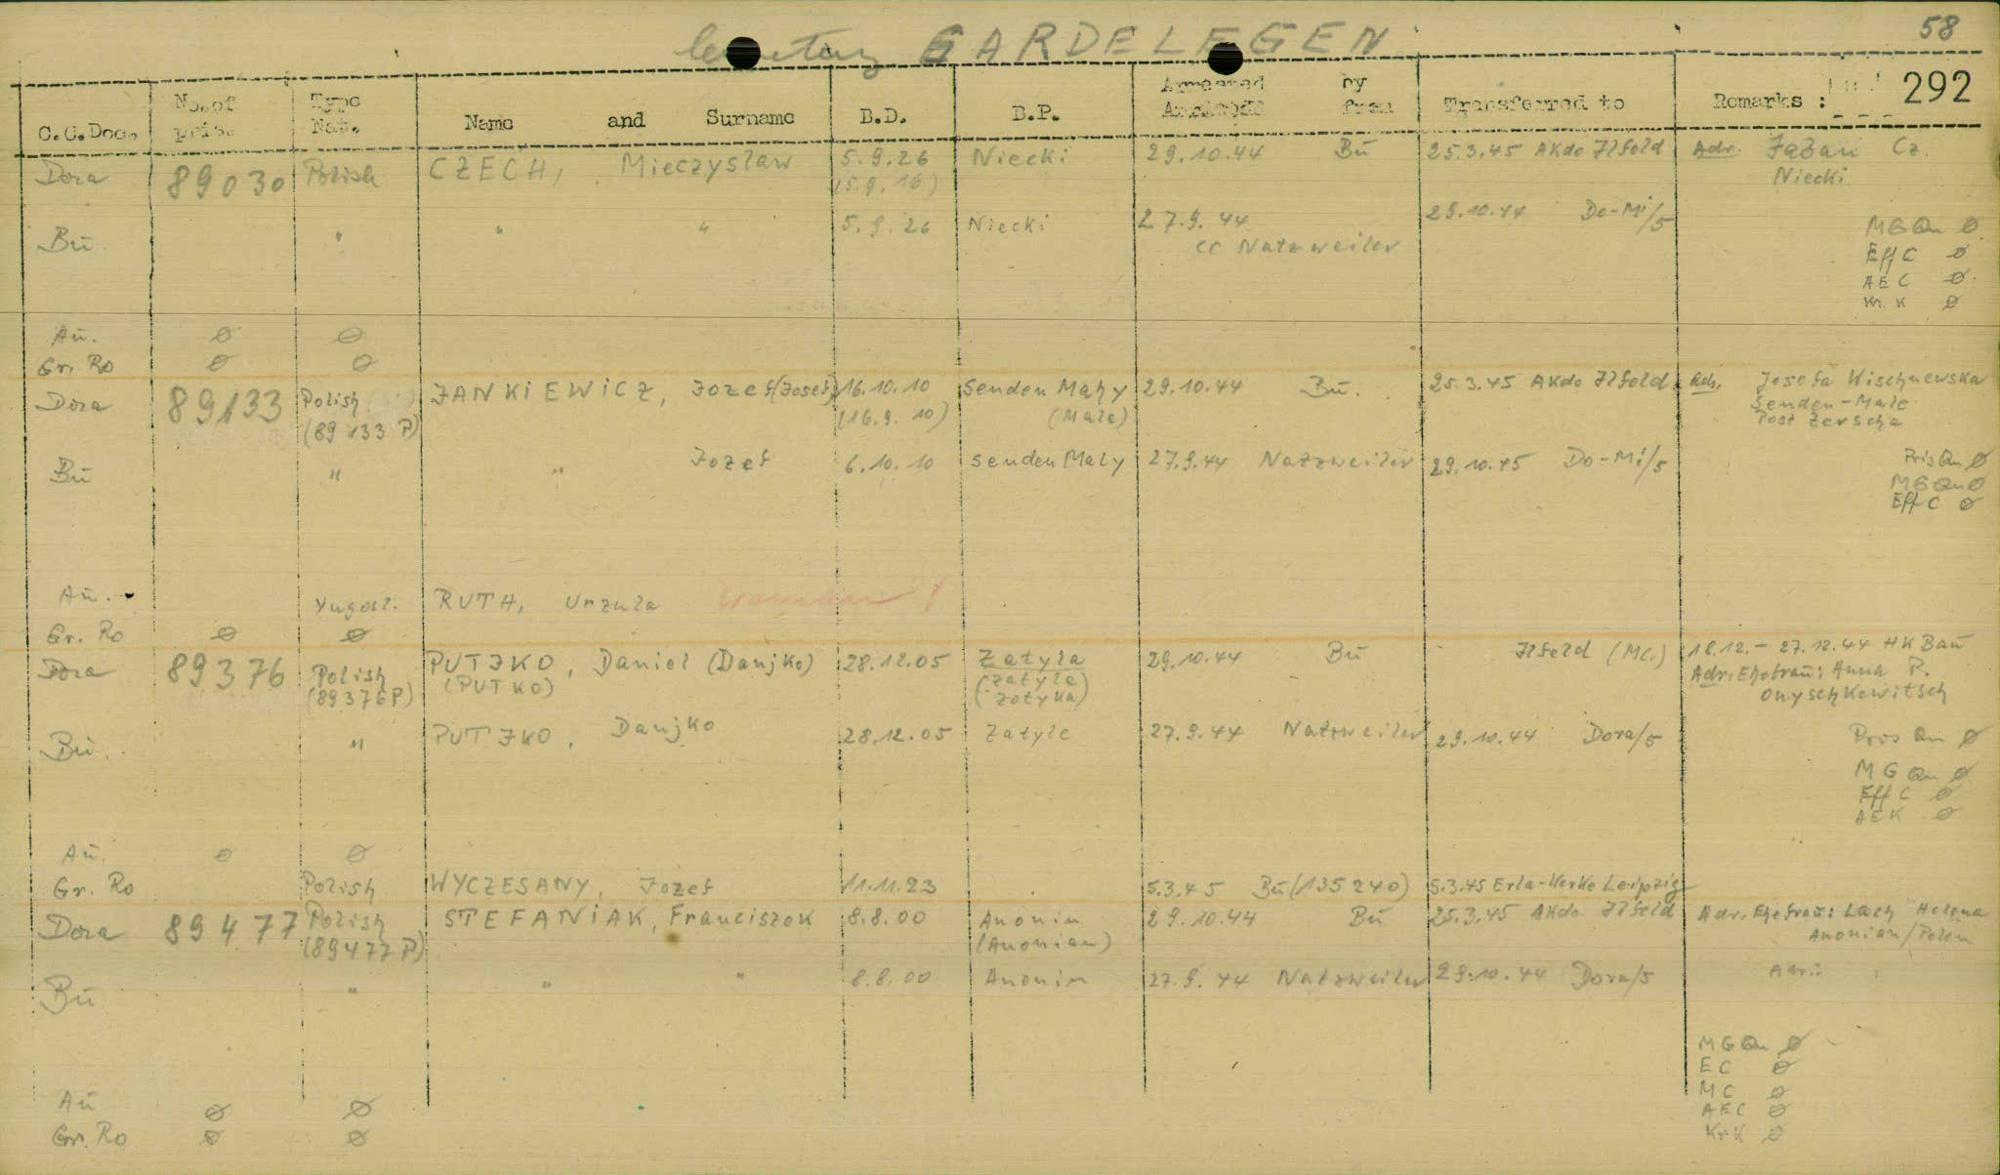 Cemetery GARDELEGEN
58
292
C.C.Doc. No.of pris. Type Nat. Name and Surname B.D. B.P. Arrested by Transferred to Remarks :
Arrived from
Dora 89030 Polish CZECH, Mieczyslaw 5.9.26 Niecki 29.10.44 Bu 25.3.45 AKdo Ilfeld Adr. Cz.
(5.9.16) Niecki
Bu " " " 5.9.26 Niecki 27.9.44 29.10.44 Do-Mi/5
CC Natzweiler
MGQu Ø
Eff C Ø
AEC Ø
Kr. K Ø
Au. Ø Ø
Gr. Ro Ø Ø
Dora 89133 Polish JANKIEWICZ, Jozef (Josef) 16.10.10 Senden Mahy 29.10.44 Bu. 25.3.45 AKdo Ilfeld Adr. Josefa Wischnewska
(89133 P) (16.9.10) (Male) Senden-Male
Post Zerscha
Bu " " Jozef 6.10.10 Senden Maly 27.9.44 Natzweiler 29.10.45 Do-Mi/5
Pris Qu Ø
MGQu Ø
Eff C Ø
Au. Yugosl. RUTH, Urzula
Gr. Ro Ø Ø
Dora 89376 Polish PUTJKO, Daniel (Danjko) 28.12.05 Zatyla 29.10.44 Bu Ilfeld (MC.) 18.12.-27.12.44 HK Bau
(89376P) (PUTKO) (Zatyle) Adr. Ehefrau: Anna P.
Zotyka) Onyschkewitsch
Bu. " PUTJKO, Danjko 28.12.05 Zatyle 27.9.44 Natzweiler 29.10.44 Dora/5
Pris Qu Ø
MGQu Ø
Eff C Ø
AEK Ø
Au. Ø Ø
Gr. Ro Polish WYCZESANY, Jozef 11.11.23 5.3.45 Bu (135240) 5.3.45 Erla-Werke Leipzig
Dora 89477 Polish STEFANIAK, Franciszek 8.8.00 Anonin 29.10.44 Bu 25.3.45 AKdo Ilfeld Adr. Ehefrau: Lach Helena
(89477 P) (Anonian) Anonian/Polen
Bu " " " 8.8.00 Anonin 27.9.44 Natzweiler 29.10.44 Dora/5 Adr.:
MGQu Ø
EC Ø
MC Ø
AEC Ø
Kr K Ø
Au Ø Ø
Gr. Ro Ø Ø